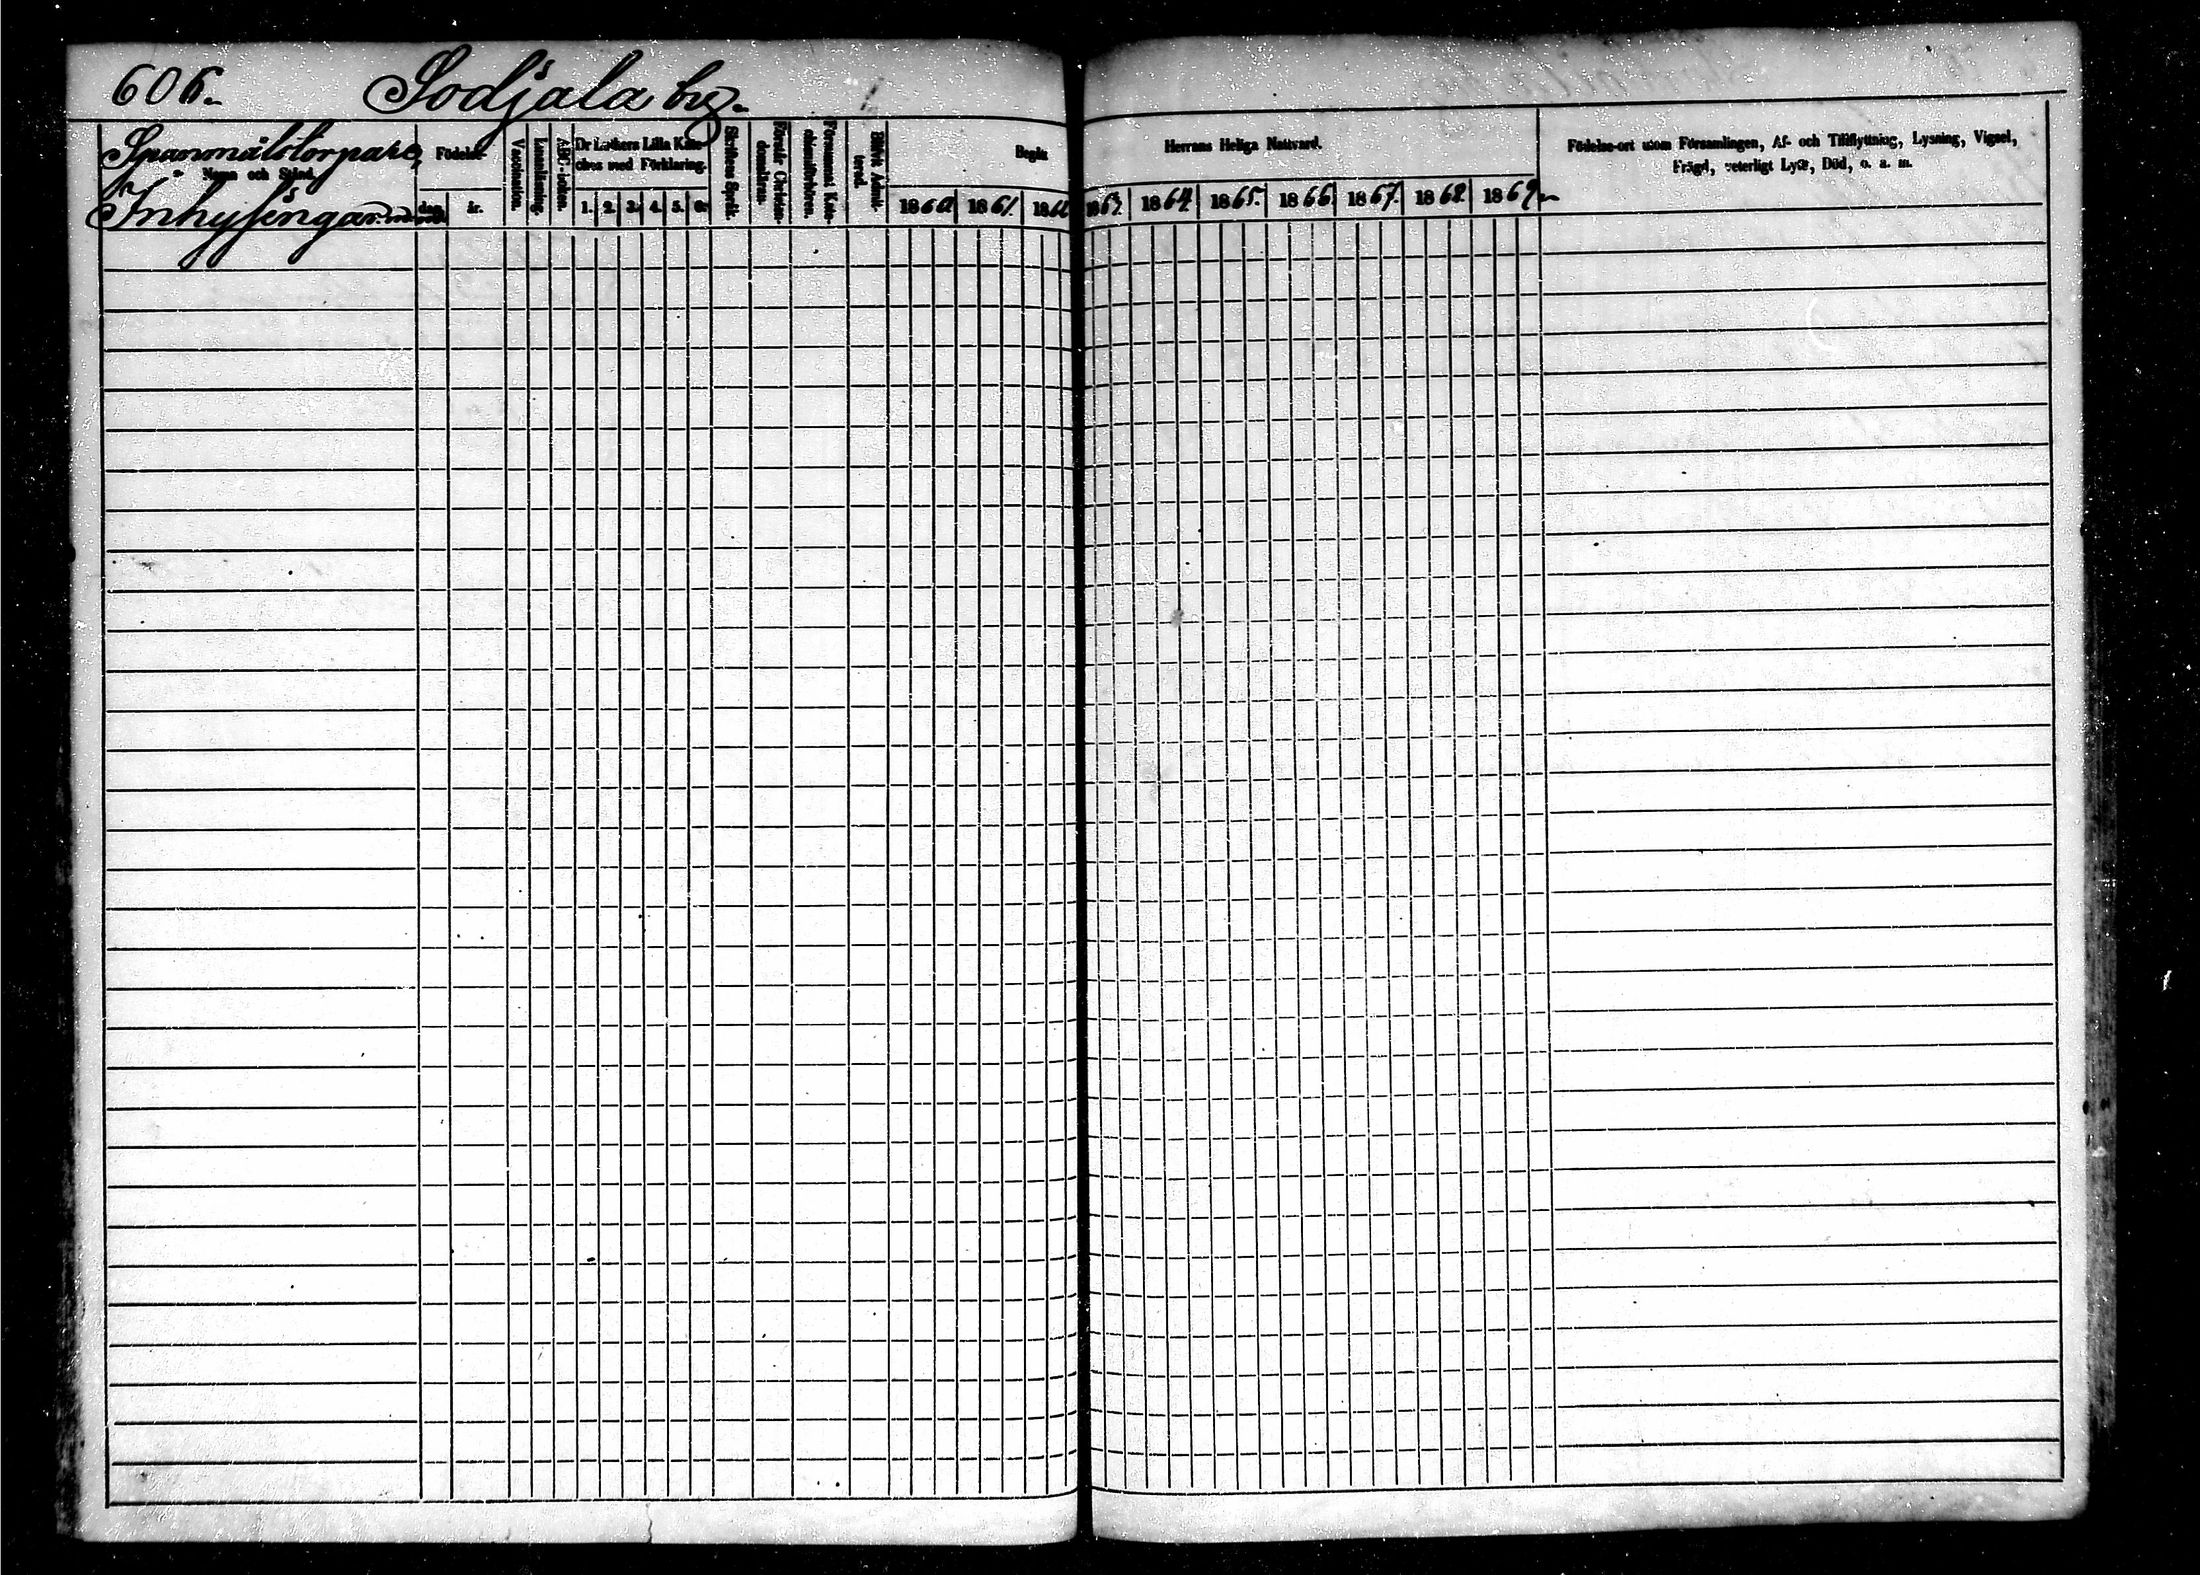 606.
Sodjala by.
Spanmålstorpare,
Namn och Stånd.
Inhysingar
Födelse-
dag
år.
Vaccination.
Innanläsning.
ABC-boken.
Dr Luthers Lilla Kate-
ches med Förklaring.
1. 2. 3. 4. 5. 6.
Skriftens Språk.
Förstår Christen-
domsläran.
Försummat Kate-
chismiförhören.
Blifvit Admit-
terad.
Begått
Herrans Heliga Nattvard.
1860 1861. 1862 1863. 1864. 1865. 1866. 1867. 1868. 1869.
Födelse-ort utom Församlingen, Af- och Tillflyttning, Lysning, Vigsel,
Frägd, veterligt Lyte, Död, o. a. m.